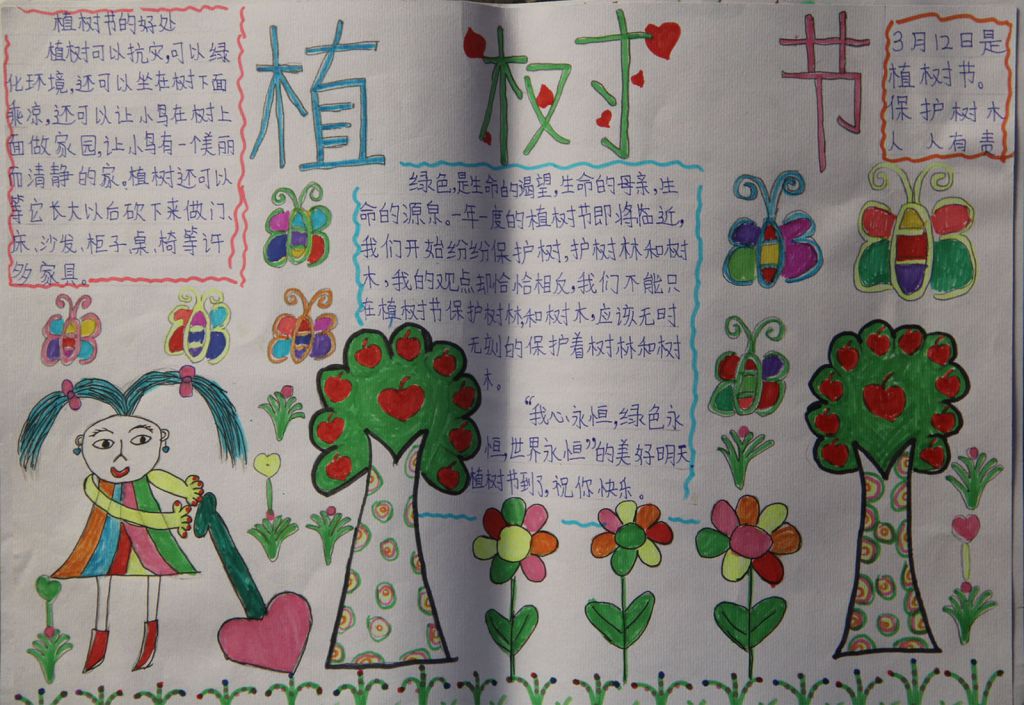 植树节
植树节的好处
植树可以抗灾,可以绿
化环境,还可以坐在树下面
乘凉,还可以让小鸟在树上
面做家园,让小鸟有一个美丽
而清静的家。植树还可以
等它长大以后砍下来做门、
床、沙发、柜子、桌、椅等许
多家具。
绿色,是生命的渴望,生命的母亲,生
命的源泉。一年一度的植树节即将临近,
我们开始纷纷保护树,护树林和树
木,我的观点却恰恰相反,我们不能只
在植树节保护树林和树木,应该无时
无刻的保护着树林和树
木。
“我心永恒,绿色永
恒,世界永恒”的美好明天
植树节到了,祝你快乐。
3月12日是
植树节。
保护树木
人人有责